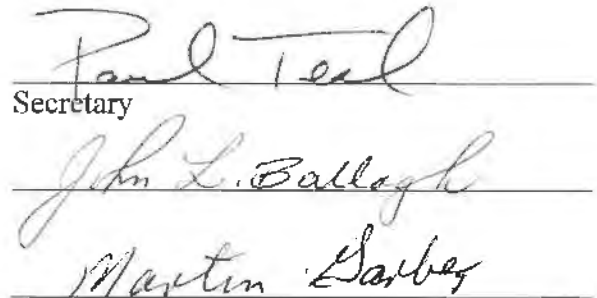 Paul Teal
Secretary
John L. Ballagh
Martin Garber